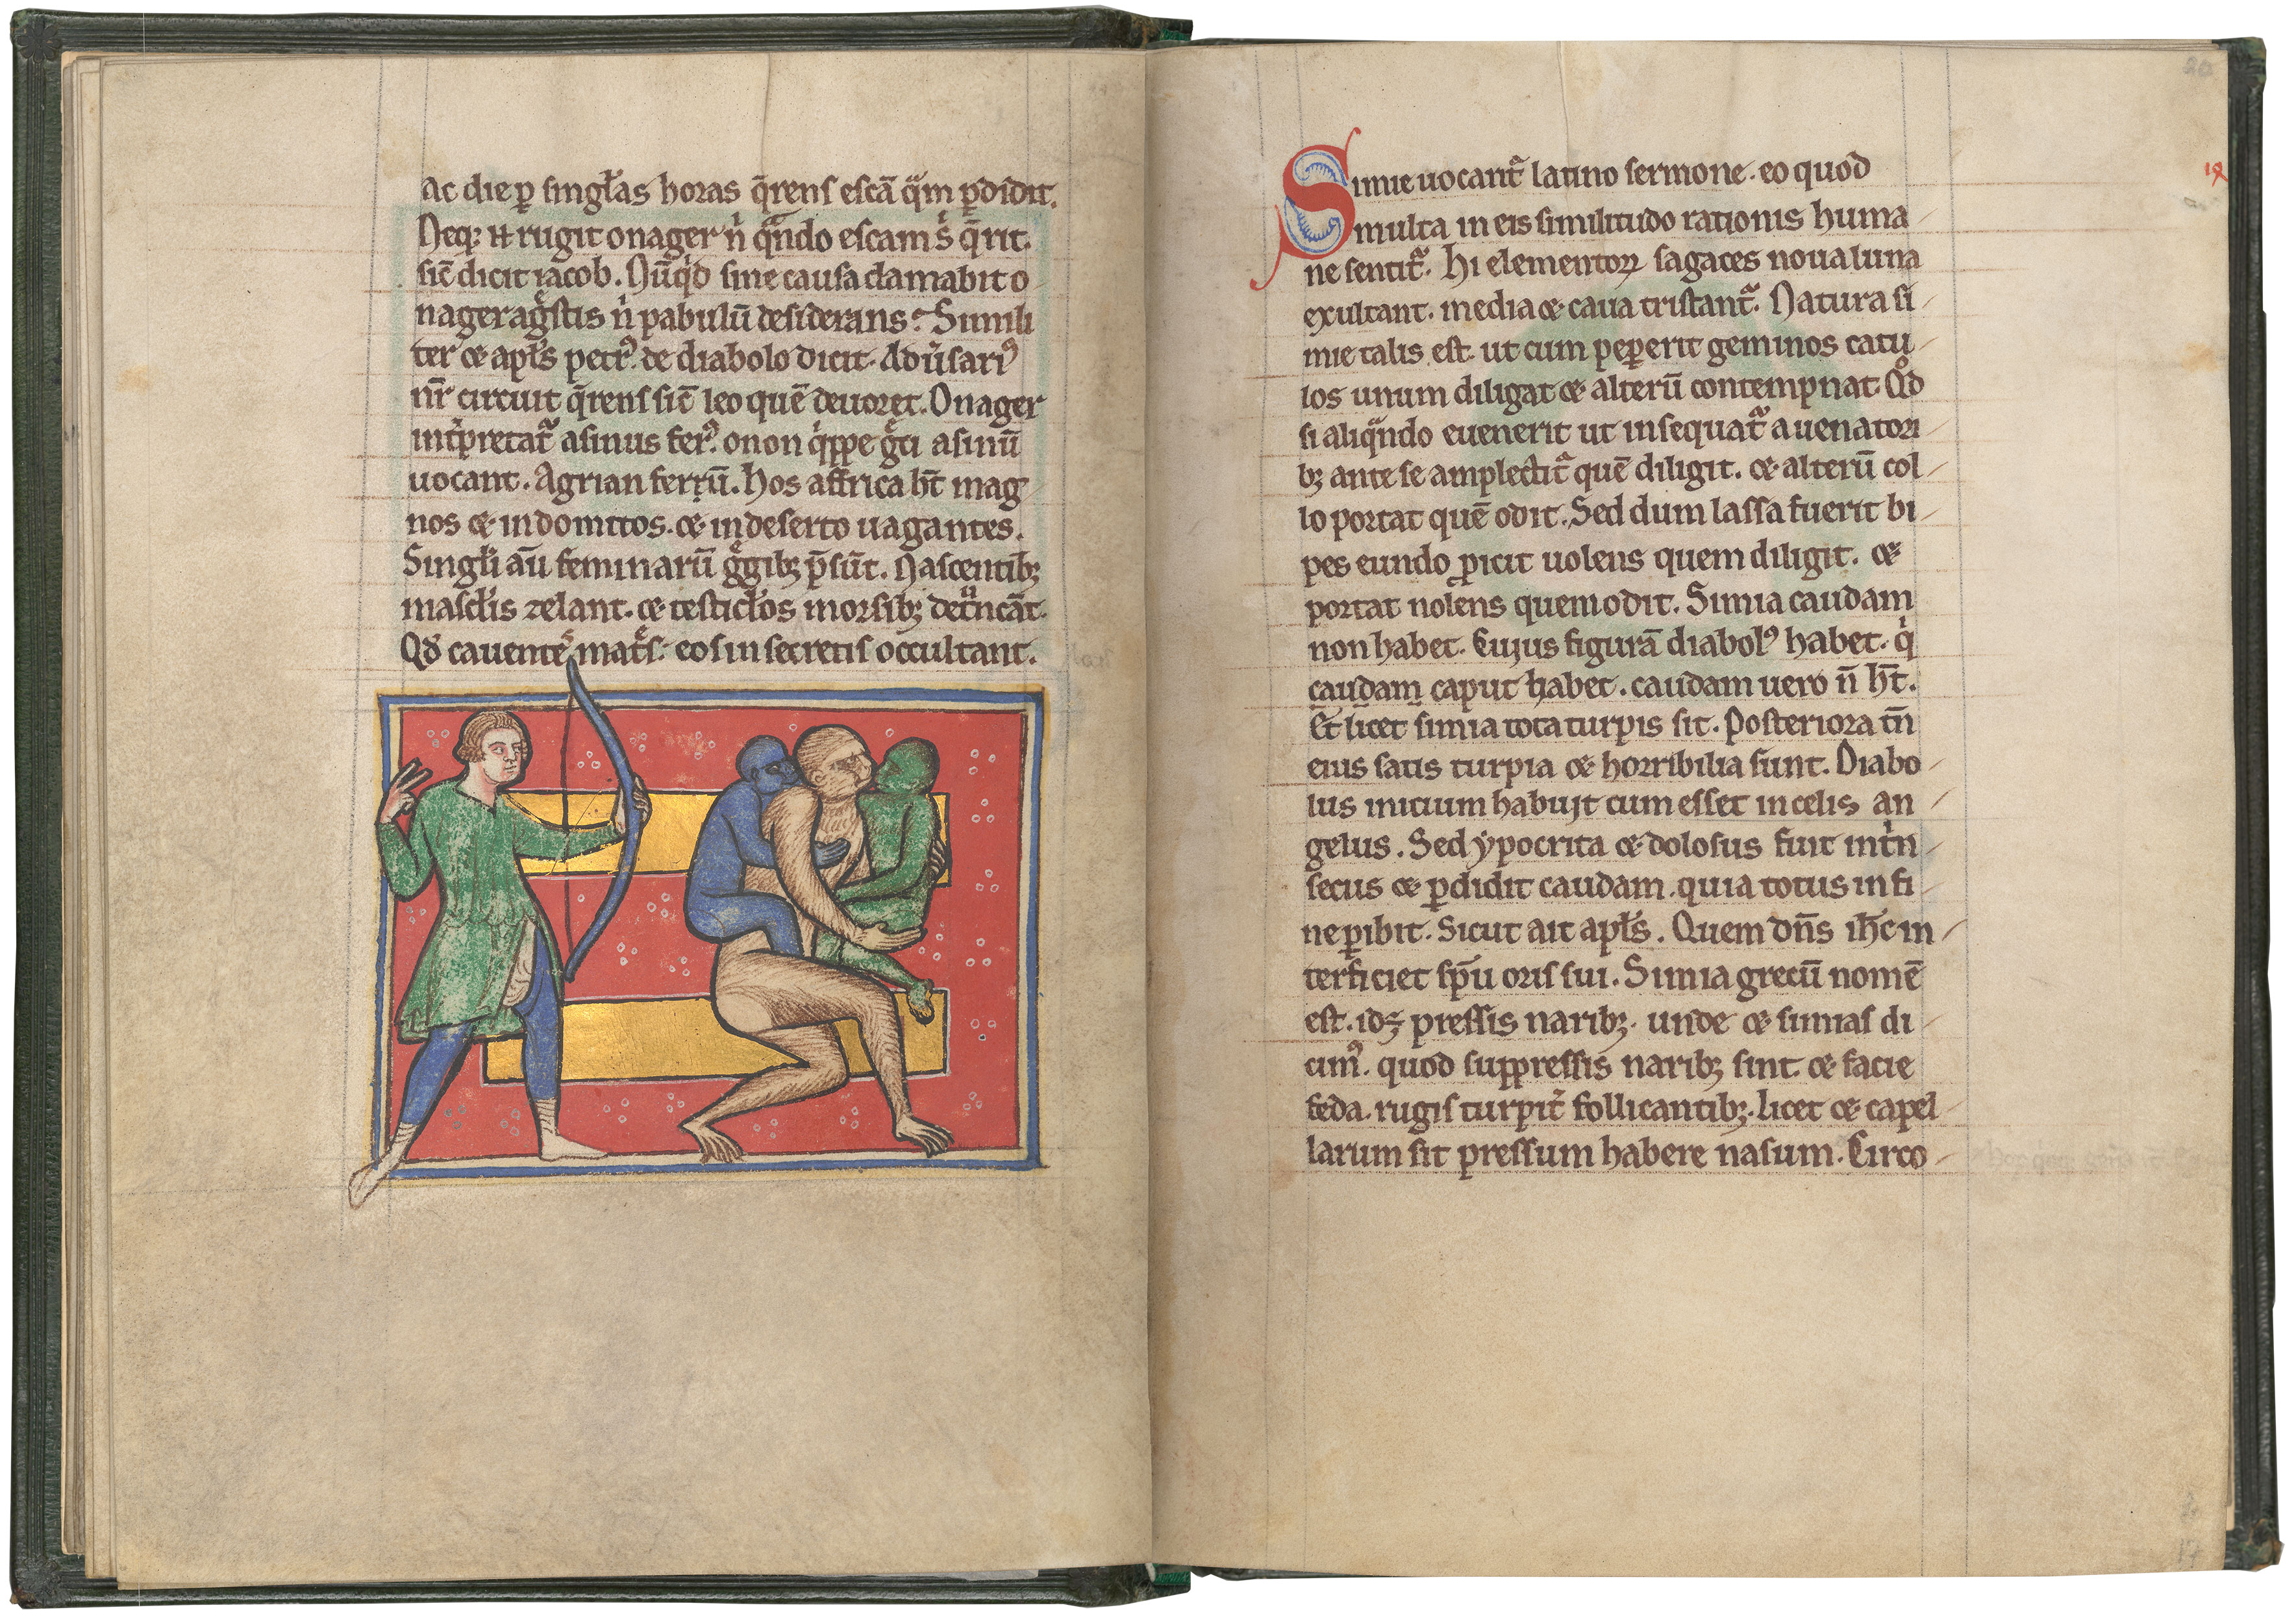 Ac die p̱ singl̃as horas q̄rens escā q̄m p̱didit.
Neq; eī rugit onager n̉ qn̄do escam s̉ q̄rit.
sic̄ dicit iacob. Nūq̉d sine causa clamabit o
nager ag̉stis n̉ pabulū desiderans? Simili
ter ⁊ apl̃s petr᷒. de diabolo dicit. Adu̓sari᷒
nr̄ circuit q̄rens sic̄ leo quē deuoret. Onager
int̓pretat᷑ asinus fer᷒. onon q̉ppe g̉ci asinū
uocant. Agrian ferrū. Hos affrica hn̄t mag
nos ⁊ indomitos. ⁊ in deserto uagantes.
Singl̃i aū feminarū g̉gib; p̄sūt. Nascentib;
mascl̃is zelant. ⁊ testicl̃os morsib; det̉ncāt.
Qd̄ cauentes mat̉s. eos in secretis occultant.
Simie uocant᷑ latino sermone. eo quod
multa in eis similitudo rationis huma
ne sentit᷑. Hi elementoꝝ sagaces noua luna
exultant. media ⁊ caua tristant᷑. Natura si
mie talis est. ut cum peperit geminos catu
los unum diligat ⁊ alterū contempnat. Qd̄
si aliqn̄do euenerit ut insequat᷑ a uenatori
b; ante se amplectit᷑ quē diligit. ⁊ alterū col
lo portat quē odit. Sed dum lassa fuerit bi
pes eundo ꝓicit uolens quem diligit. ⁊
portat nolens quem odit. Simia caudam
non habet. Cujus figurā diabol᷒ habet. q̉
caudam caput habet. caudam uero n̄ hƷt.
Et licet simia tota turpis sit. Posteriora tn̄
eius satis turpia ⁊ horribilia sunt. Diabo
lus inicium habuit cum esset in celis an
gelus. Sed ypocrita ⁊ dolosus fuit int̓n
secus ⁊ p̱didit caudam. quia totus in fi
ne p̱ibit. Sicut ait apl̃s. Quem dn̄s ih̄c in
terficiet sp̄u oris sui. Simia grecū nomē
est. id ÷ pressis narib;. unde ⁊ simias di
cim᷒. quod suppressis narib; sint. ⁊ facie
feda. rugis turpit̓ follicantib;. licet ⁊ capel
larum sit pressum habere nasum. Circo